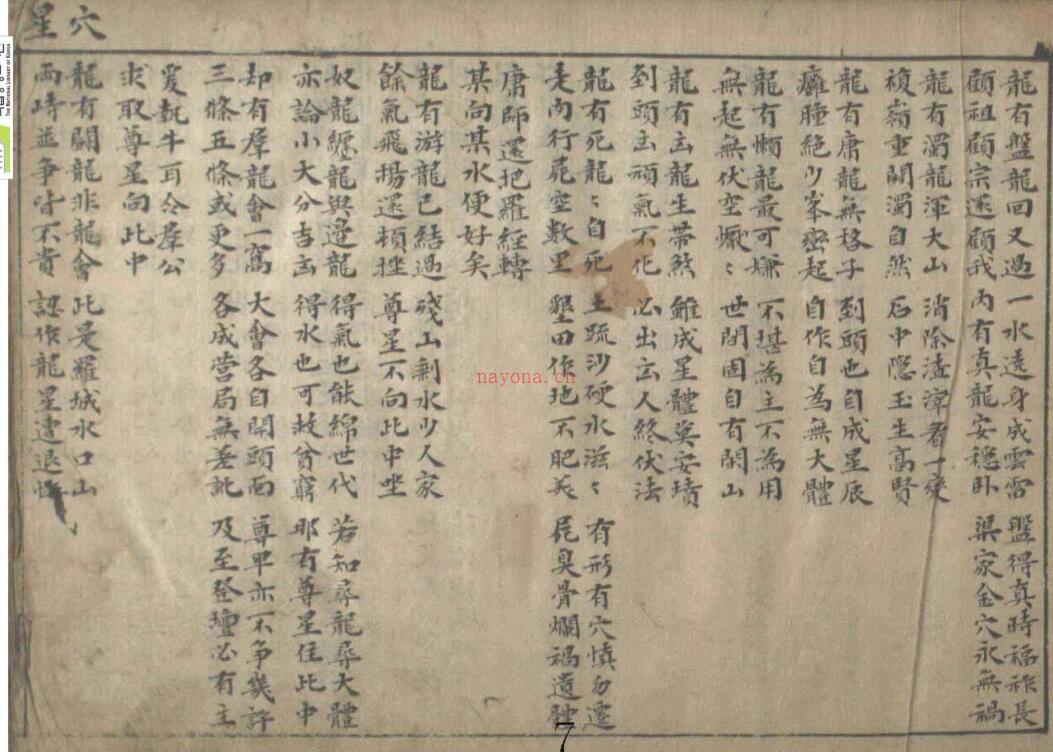 穴星
龍有盤龍回又過 一水透身成雲雷 盤得真時福祚長
顧祖顧宗還顧我 內有真龍安穩臥 渠家金穴永無禍
龍有濁龍渾大山 消除渣滓看一變
複嶺重關濁自然 石中隱玉生高賢
龍有庸龍無格子 到頭也自成星辰
癰腫絕少峯巒起 自作自為無大體
龍有懶龍最可嫌 不堪為主不為用
無起無伏空懨〻 世間固自有閑山
龍有凶龍生帶煞 雖成星體莫安墳
到頭頑氣不化 必出凶人終伏法
龍有死龍〻自死 土疏沙硬水滋〻 有形有穴慎勿遷
走肉行屍空數里 墾田作地不肥美 屍臭骨爛禍遺體
庸師還把羅經轉
某向某水便好矣
龍有游龍已結過 殘山剩水少人家
餘氣飛揚還頓挫 尊星不向此中坐
奴龍纏龍與邊龍 得氣也能綿世代 若知尋龍尋大體
亦論小大分吉凶 得水也可救貧窮 那有尊星住此中
却有羣龍會一窩 大會各自開頭面 尊卑亦不爭幾許
三條五條或更多 各成營局無差訛 及至登壇必有主
爰執牛耳令羣公
求取尊星向此中
龍有鬪龍非龍會 此是羅城水口山
兩峙並爭皆不貴 認作龍星退
nayona.cn
7